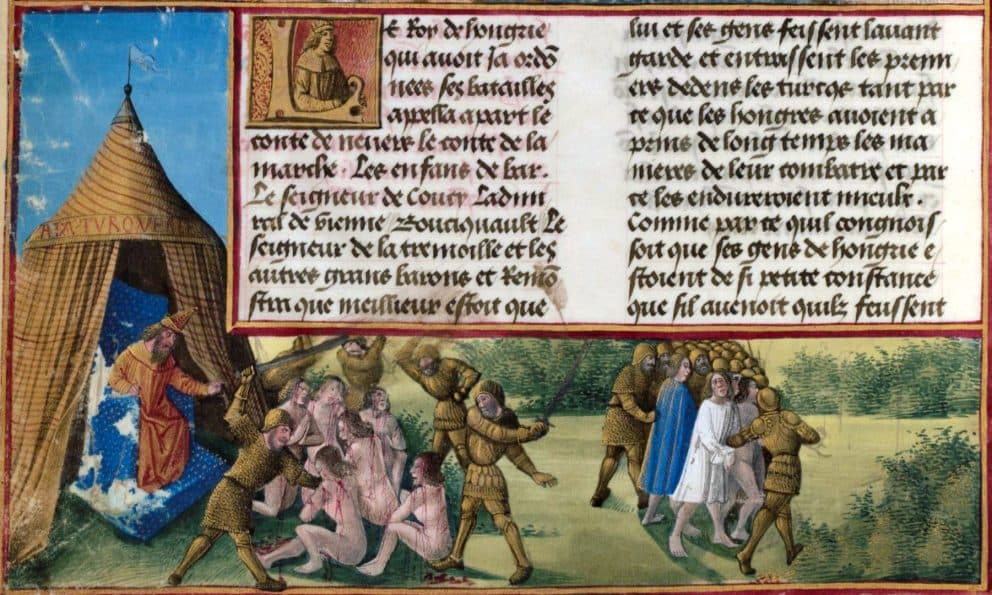 Le Roy de hongrie
qui auoit ja ordõ
nees ses batailles
appella apart le
conte de neuers le conte de la
marche . Les enfans de bar .
Le seigneur de Coucy Ladmi
ral de vienne Bouciquault Le
seigneur de la tremoille et les
autres grans barons et Remõ
stra que meillieur estoit que
lui et ses gens feissent lauant
garde et entraissent les premi
ers dedens les turcqs tant par
ce que les hongres auoient a
prins de long temps les ma
nieres de leur combatre et par
ce les endureroient mieulx .
Comme par ce quil congnois
soit que ses gens de hongrie e
stoient de si petite constance
que sil auenoit quilz feussent